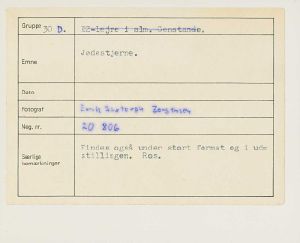 Gruppe 30 D. KZ-lejre i alm. Genstande.
Emne Jødestjerne.
Dato
Fotograf
Neg. nr. 20 806
Særlige bemærkninger
Findes også under stort format og i ude
stillingen. Ros.